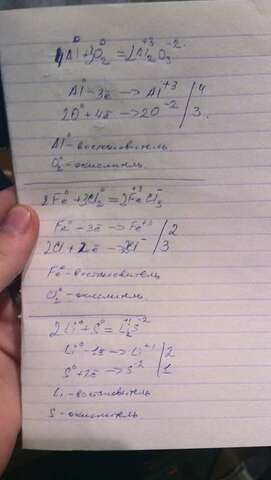 4Al⁰+3O₂⁰=2Al₂⁺³O₃⁻²
Al⁰-3e̅→Al⁺³ | 4
2O⁰+4e̅→2O⁻² | 3
Al⁰-востановитель
O₂⁰-окислитель.
2Fe⁰+3Cl₂⁰=2Fe⁺³Cl₃⁻
Fe⁰-3e̅→Fe⁺³ | 2
2Cl+2e̅→2Cl⁻ | 3
Fe⁰-востановитель
Cl₂⁰-окислитель
2Li⁰+S⁰=Li₂⁺¹S⁻²
Li⁰-1e̅→Li⁺¹ | 2
S⁰+2e̅→S⁻² | 1
Li-востановитель
S-окислитель